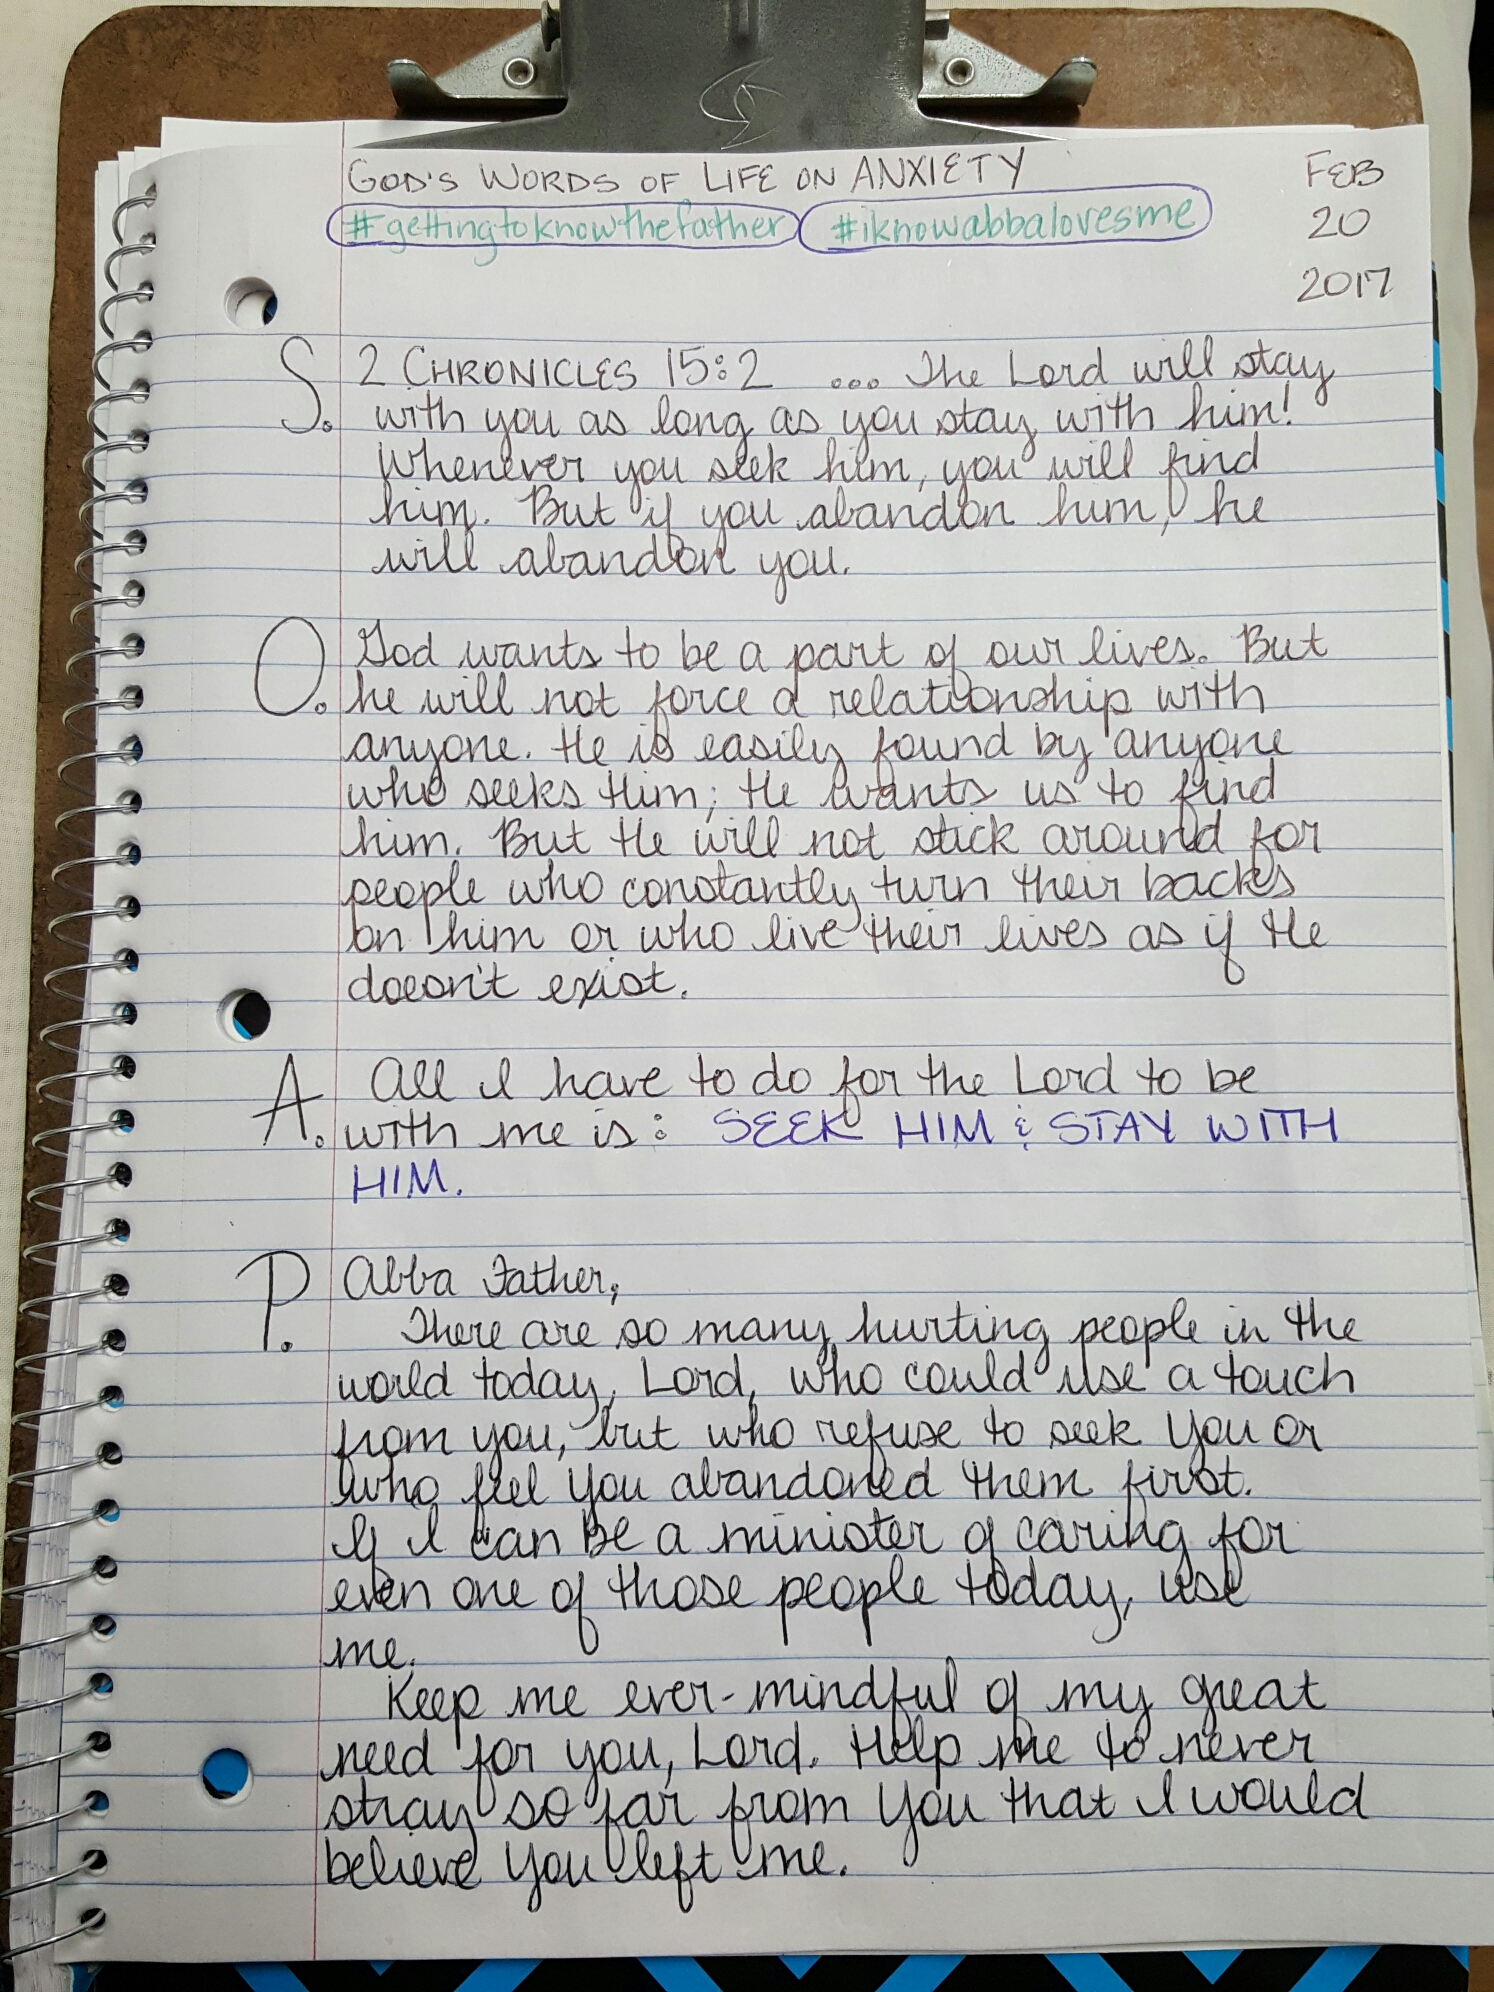 GOD'S WORDS OF LIFE ON ANXIETY
#gettingtoknowthefather #iknowabbalovesme
FEB
20
2017
S. 2 CHRONICLES 15:2 ... The Lord will stay
with you as long as you stay with him!
Whenever you seek him, you will find
him. But if you abandon him, he
will abandon you.
O. God wants to be a part of our lives. But
he will not force a relationship with
anyone. He is easily found by anyone
who seeks Him; He wants us to find
him. But He will not stick around for
people who constantly turn their backs
on him or who live their lives as if He
doesn't exist.
A. All I have to do for the Lord to be
with me is: SEEK HIM & STAY WITH
HIM.
P. Abba Father,
There are so many hurting people in the
world today, Lord, who could use a touch
from you, but who refuse to seek You or
who feel You abandoned them first.
If I can be a minister of caring for
even one of those people today, use
me.
Keep me ever-mindful of my great
need for you, Lord. Help me to never
stray so far from You that I would
believe You left me.